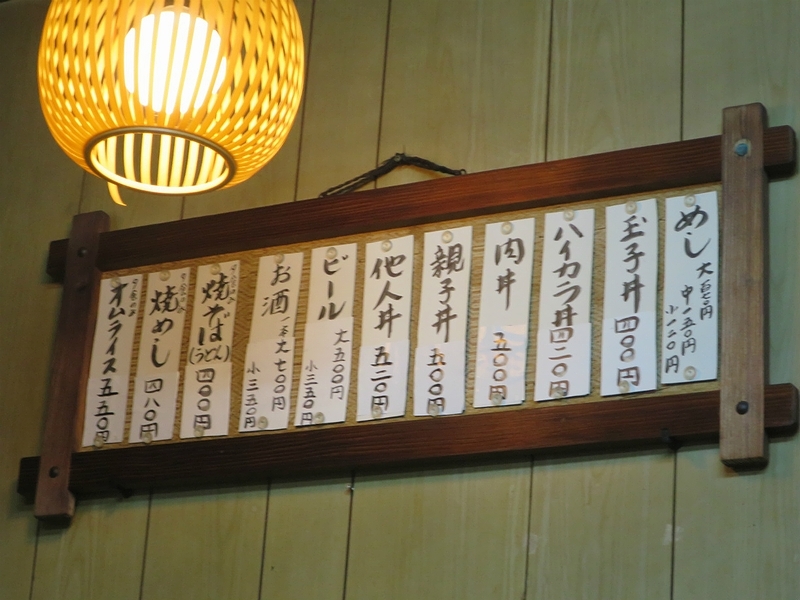 めし 大 百七〇円
中 一五〇円
小 一二〇円
玉子丼 四〇〇円
ハイカラ丼 四二〇円
肉丼 五〇〇円
親子丼 五〇〇円
他人丼 五二〇円
ビール 大 五〇〇円
小 三五〇円
お酒 大 七〇〇円
小 三五〇円
焼そば
(うどん) 四〇〇円
焼めし 四八〇円
オムライス 五五〇円